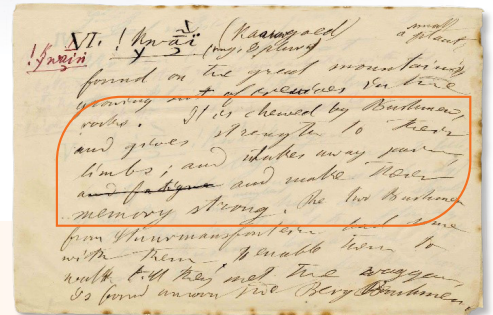 XI. !kwaiï (Kaauwgoed small
!kwaiñ a plant
found on the great mountains,
growing out of crevices in the
rocks. It is chewed by Bushmen,
and gives strength to their
limbs; and takes away pain,
and fatigue and make their
memory strong. The two Bushmen
from had some
with them, to enable them to
walk till they met the waggon.
Is found among the Berg Bushmen.